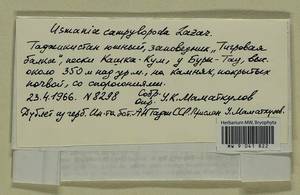 Usmania campylopoda Lazar.
Таджикистан южный, заповедник "Тигровая
балка", пески Кашка-Кум, у Бури-Тау, выс.
около 350 м над ур. м., на камнях, покрытых
почвой, со спорогониями.
23.4.1966. N 8298 Собр. Опр. У.К. Маматкулов
Дублет из герб. Ин-та бот. АН Тадж ССР. Прислан У. Маматкулов.
Herbarium MW, Bryophyta
MW 9 041 822